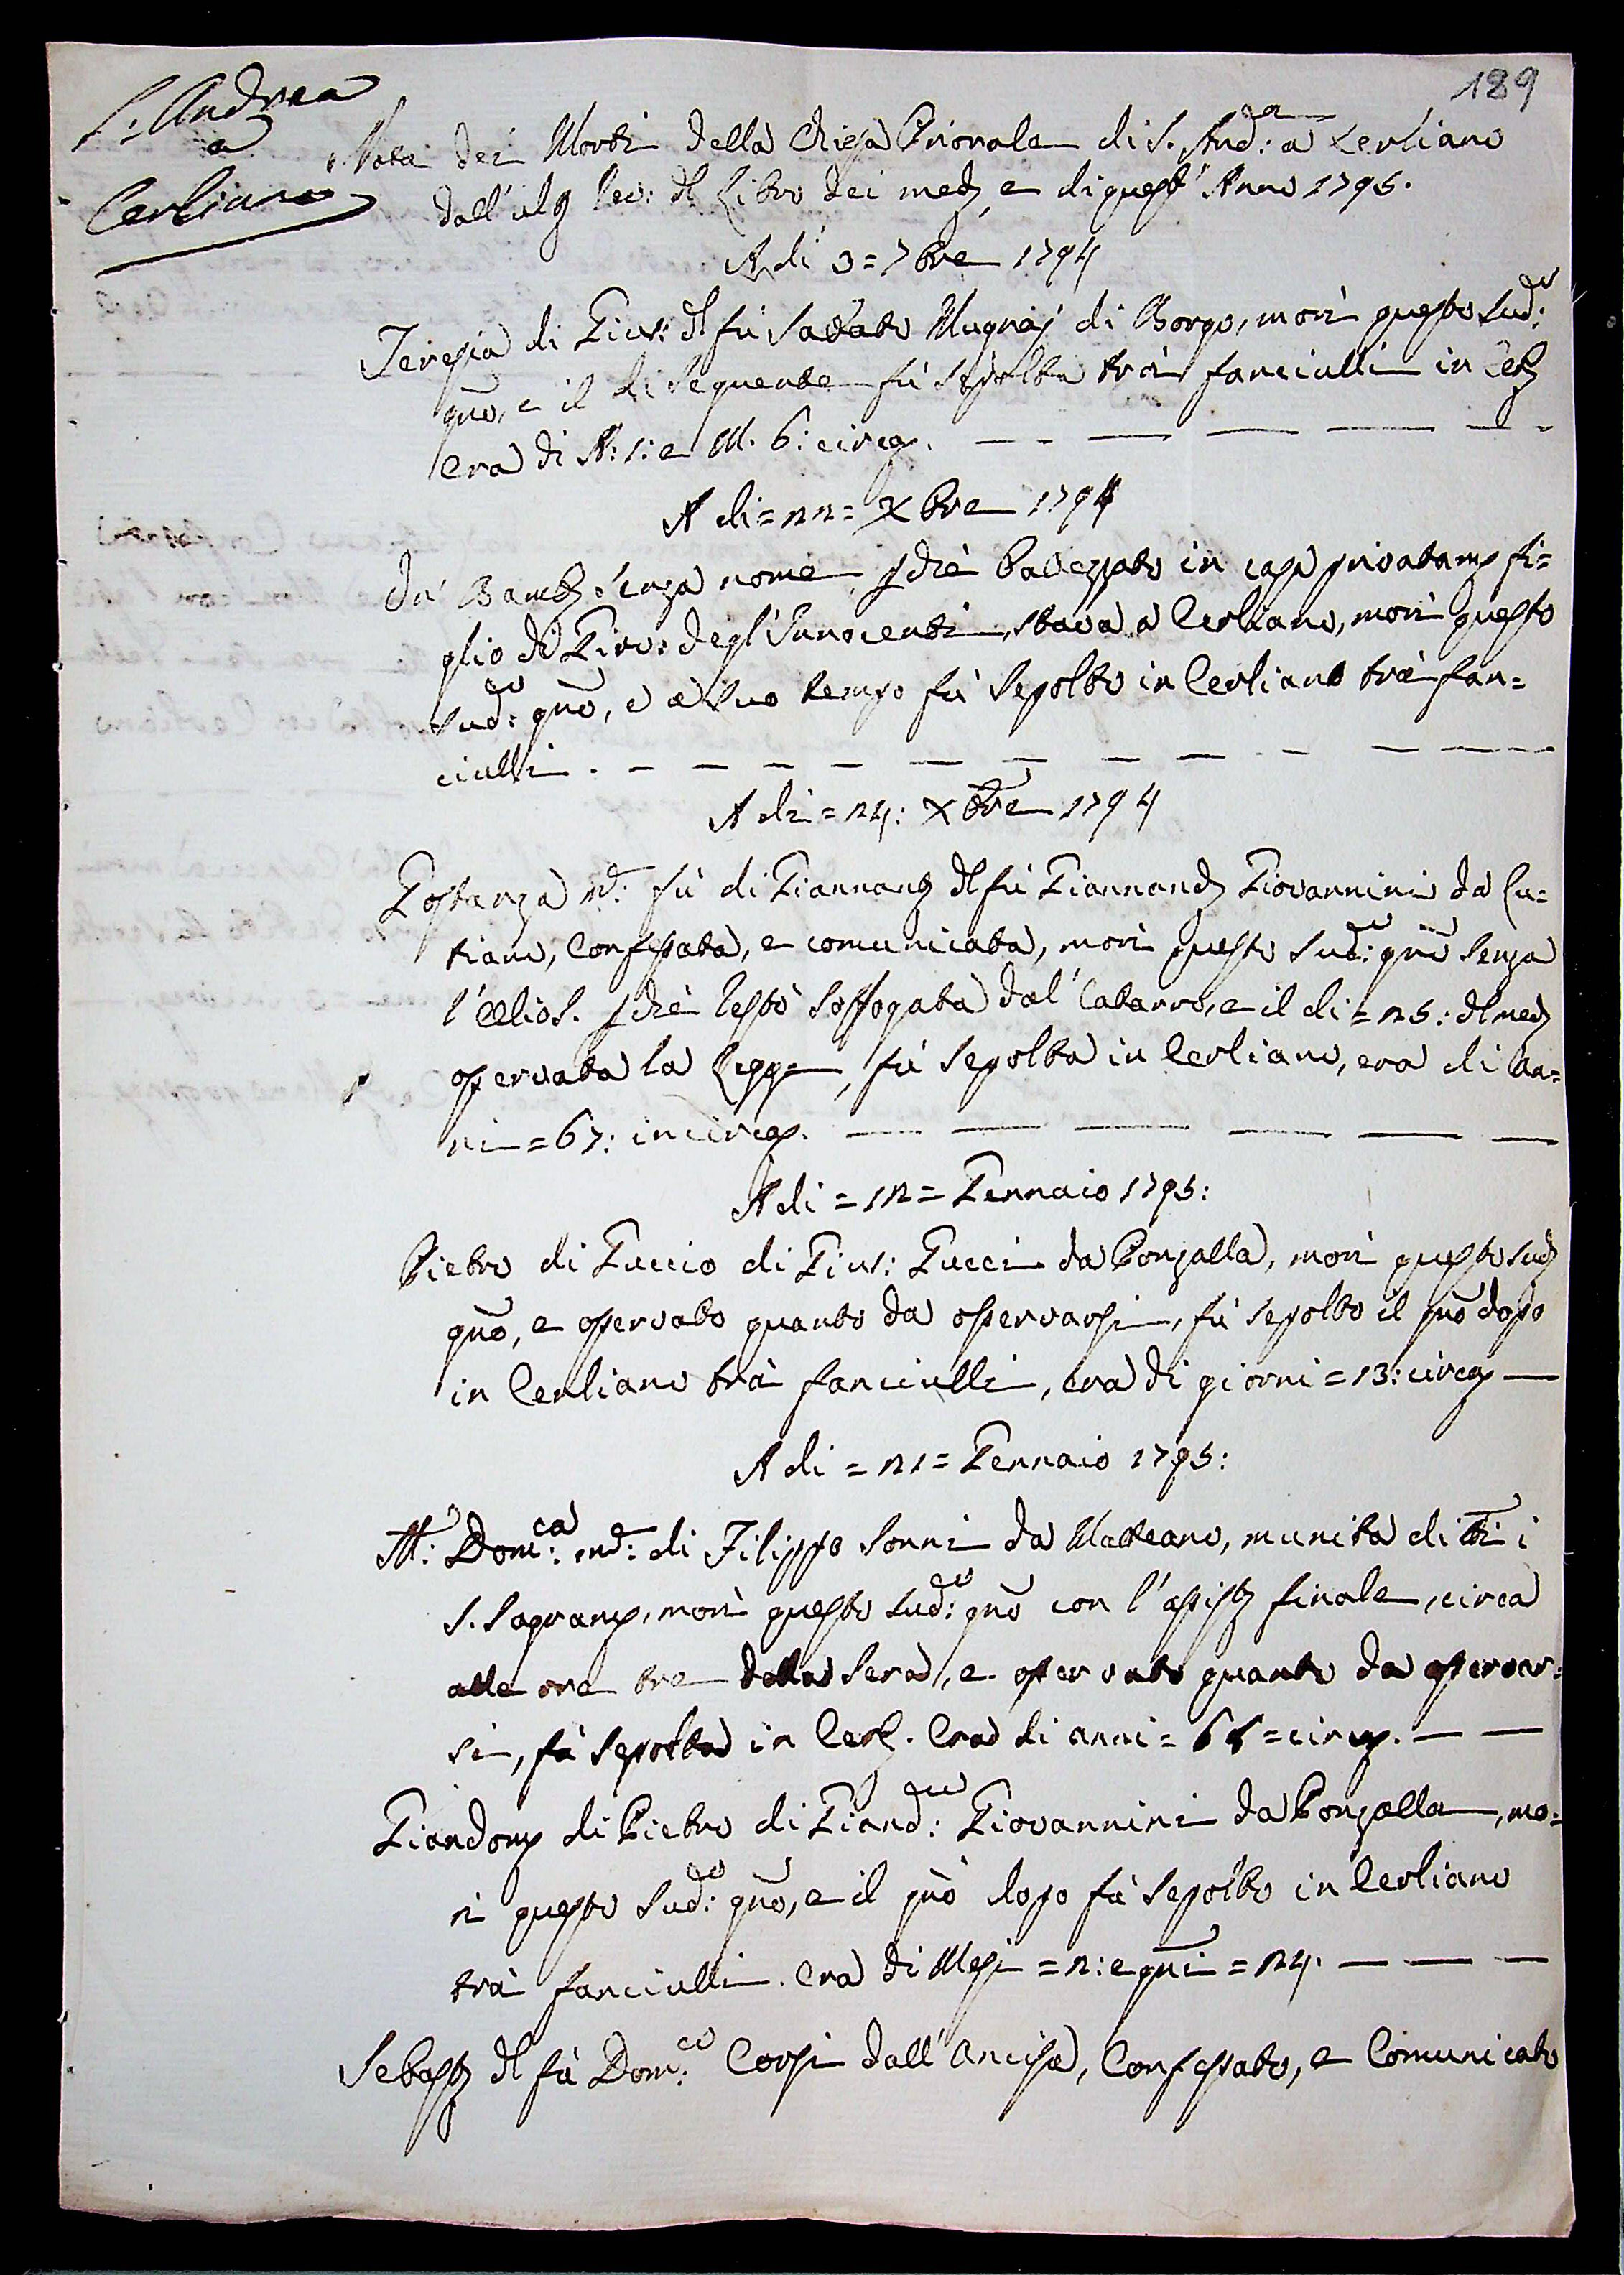 189
S. Andrea
a
Cerliano
Nota dei Morti della Chiesa Priorale di S. And:ª a Cerliano
dall' ul Rev: dl Libro dei med, e di quest' Anno 1795.
A di 3 = 7bre 1794
Teresia di Gius: dl fù Sabato Mugnaj di Borgo, morì questo sud:º
gnō, e il di sequente fù sepolta trà fanciulli in Cerl
era di A: 1: e M. 6: circa.
A di = 22 = Xbre 1794
Un' Bamb. senza nome pchè Battezzato in casa privatam fi=
glio di Giov: degl' Innocenti, stava a Cerliano, morì questo
sud:º gnō, e a suo tempo fù sepolto in Cerliano trà fan=
ciulli.
A di = 24: Xbre 1794
Gostanza md: fù di Giannant dl fù Giannand Giovannini da Cu=
tiano, Confessata, e comunicata, morì questo sud:º gnō senza
l' Olio S. pchè restò soffogata dal' Catarro, e il di = 25: dl med
osservata la Legge, fù sepolta in Cerliano, era di An=
ni = 67: in circa.
A di = 12 = Gennaio 1795:
Pietro di Guccio di Gius: Gucci da Ponzalla, morì questo sud
gnō, e osservato quanto da osservarsi, fù sepolto il gnō dopo
in Cerliano trà fanciulli, era di giorni = 13: circa
A di = 21 = Gennaio 1795:
M:ª Dom:ca md: di Filippo Sonni da Matteano, munita di tti i
S. Sagram, morì questo sud:º gnō con l' assist finale, circa
alle ore tre della sera, e osservato quanto da osservar=
si, fù sepolta in Cerl. Era di anni = 66 = circa.
Giandom di Pietro di Giand:co Giovannini da Ponzalla, mo=
rì questo sud:º gnō, e il gnō dopo fù sepolto in Cerliano
trà fanciulli. Era di Mesi = 2: e gni = 24.
Sebast dl fù Dom:co Corsi dall' Ancisa, Confessato, e Comunicato